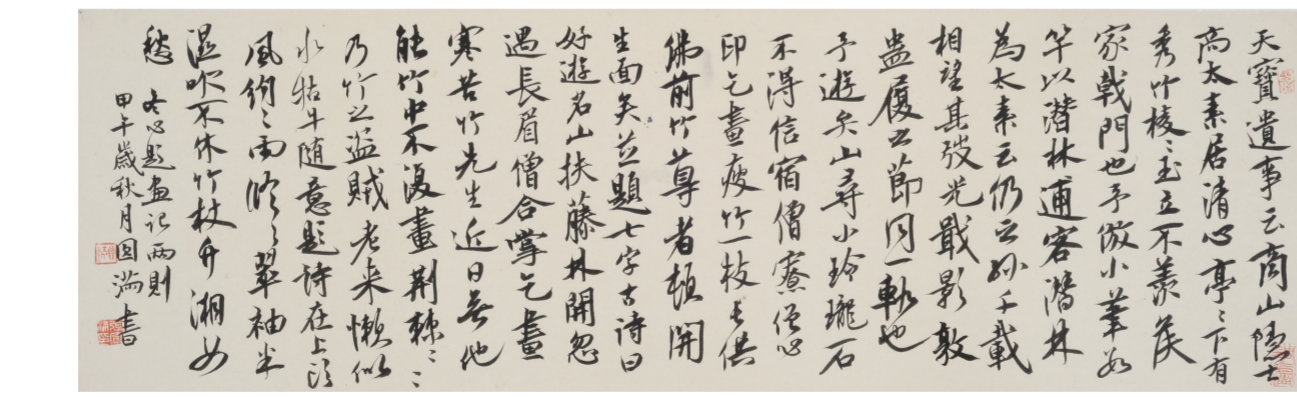 天寶遺事云商山隱士
高太素居清心亭〻下有
秀竹棱〻玉立不羨矦
家戟門也予倣小筆數
竿以潛林逋客潛林
為太素云仍云孫千載
相望其發光戢影敦
蠱履之節同一軌也
予遊矣山尋小玲瓏石
不得信宿僧寮僧心
印乞畫瘦竹一枝長供
佛前竹尊者頓開
生面矣並題七字古詩曰
好遊名山扶藤杖開忽
遇長眉僧合掌乞畫
寒苦竹先生近日無他
能竹中不復畫荆棘〻〻
乃竹之盜賊老來懶似
水牯牛随意題詩在上頭
風絢〻雨修〻翠袖半
濕吹不休竹枝竹湘女
愁
冬心題畫記兩則
甲午歲秋月圆满書